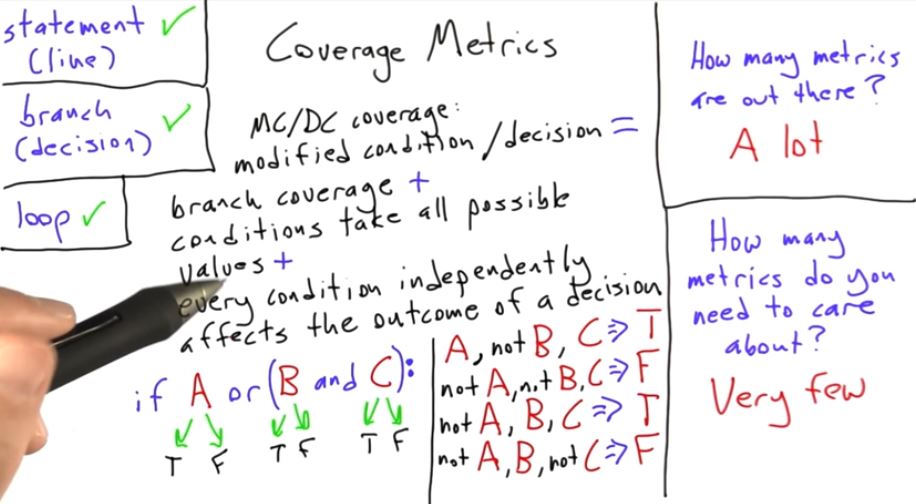 statement
(line)
branch
(decision)
loop
Coverage Metrics
MC/DC coverage:
modified condition/decision =
branch coverage +
conditions take all possible
values +
every condition independently
affects the outcome of a decision
if A or (B and C):
T F T F T F
A, not B, C => T
not A, not B, C => F
not A, B, C => T
not A, B, not C => F
How many metrics
are out there?
A lot
How many
metrics do you
need to care
about?
Very few